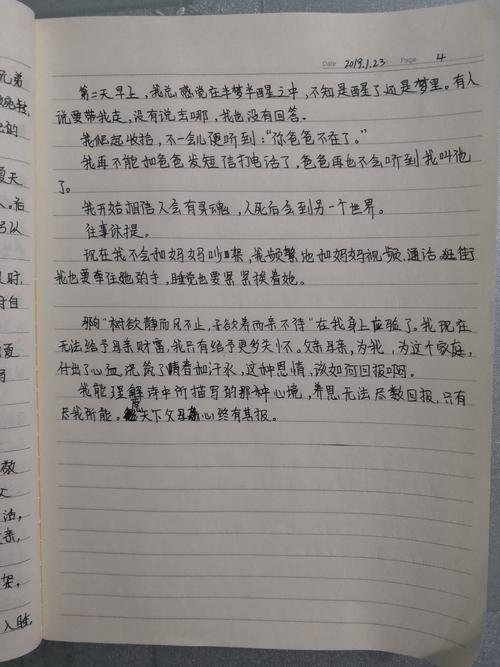 Date 2019.1.23 Page 4
第二天早上,我总感觉在半梦半醒之中,不知是醒了还是梦里。有人
说要带我走,没有说去哪,我也没有回答。
我爬起收拾,不一会儿便听到:“你爸爸不在了。”
我再不能和爸爸发短信打电话了,爸爸再也不会听到我叫他
了。
我开始相信人会有灵魂,人死后会到另一个世界。
往事休提。
现在我不会和妈妈吵架,我频繁地和妈妈视频、通话,逛街
我也要牵住她的手,睡觉也要紧紧挨着她。
那句“树欲静而风不止,子欲养而亲不待”在我身上应验了。我现在
无法给予母亲财富,我只有给予更多关怀。父亲母亲,为我,为这个家庭,
付出了心血,浇筑了青春和汗水,这种恩情,该如何回报啊。
我能理解诗中所描写的那种心境,养恩无法尽数回报,只有
尽我所能。愿天下父母心终有其报。
兄弟
夏天
时,
自
夏
敬
父
亲,
架,
入睡,